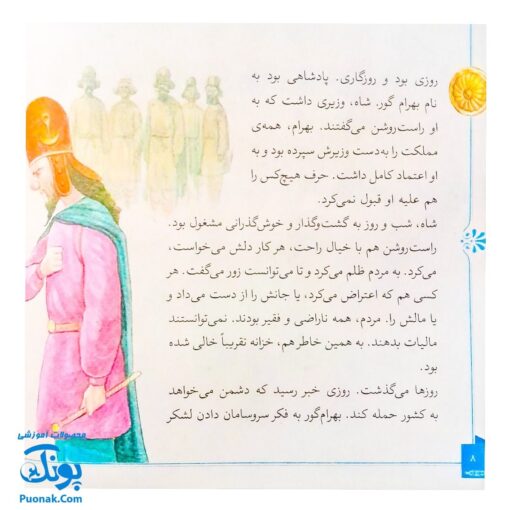 روزی بود و روزگاری. پادشاهی بود به
نام بهرام گور. شاه، وزیری داشت که به
او راست‌روشن می‌گفتند. بهرام، همه‌ی
مملکت را به‌دست وزیرش سپرده بود و به
او اعتماد کامل داشت. حرف هیچ‌کس را
هم علیه او قبول نمی‌کرد.
شاه، شب و روز به گشت‌وگذار و خوش‌گذرانی مشغول بود.
راست‌روشن هم با خیال راحت، هر کار دلش می‌خواست،
می‌کرد. به مردم ظلم می‌کرد و تا می‌توانست زور می‌گفت. هر
کسی هم که اعتراض می‌کرد، یا جانش را از دست می‌داد و
یا مالش را. مردم، همه ناراضی و فقیر بودند. نمی‌توانستند
مالیات بدهند. به همین خاطر هم، خزانه تقریباً خالی شده
بود.
روزها می‌گذشت. روزی خبر رسید که دشمن می‌خواهد
به کشور حمله کند. بهرام‌گور به فکر سروسامان دادن لشکر
۸
محصولات آموزشی
پونک
Puonak.Com